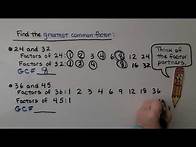 Find the greatest common factor:
• 24 and 32
Factors of 24: 1 2 3 4 6 8 12 24
Factors of 32: 1 2 4 8 16 32
GCF 8
• 36 and 45
Factors of 36: 1 2 3 4 6 9 12 18 36
Factors of 45: 1
GCF
Think of
the factor
partners.